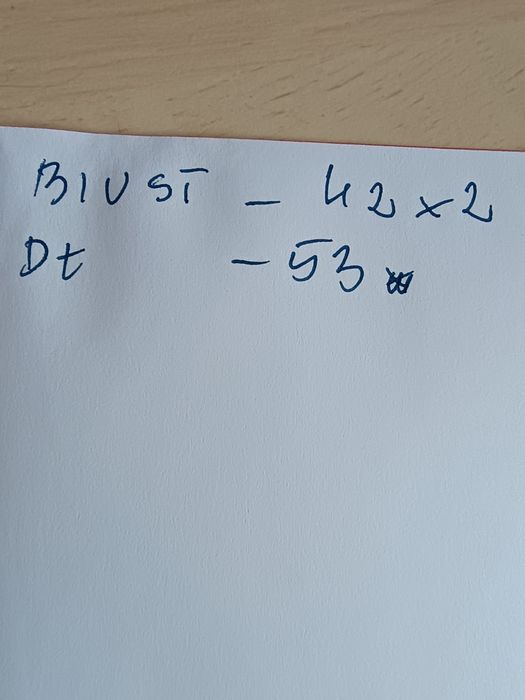 BIUST - 42 x 2
Dt - 53